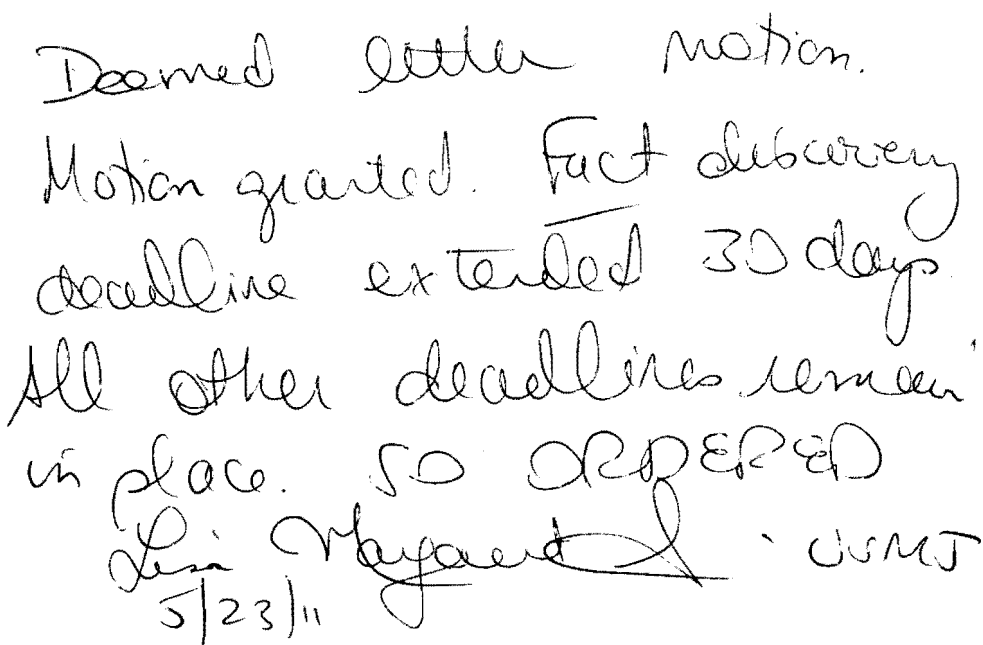 Deemed letter motion.
Motion granted. Fact discovery
deadline extended 30 days.
All other deadlines remain
in place. SO ORDERED
Lisa Margaret
USMJ
5/23/11